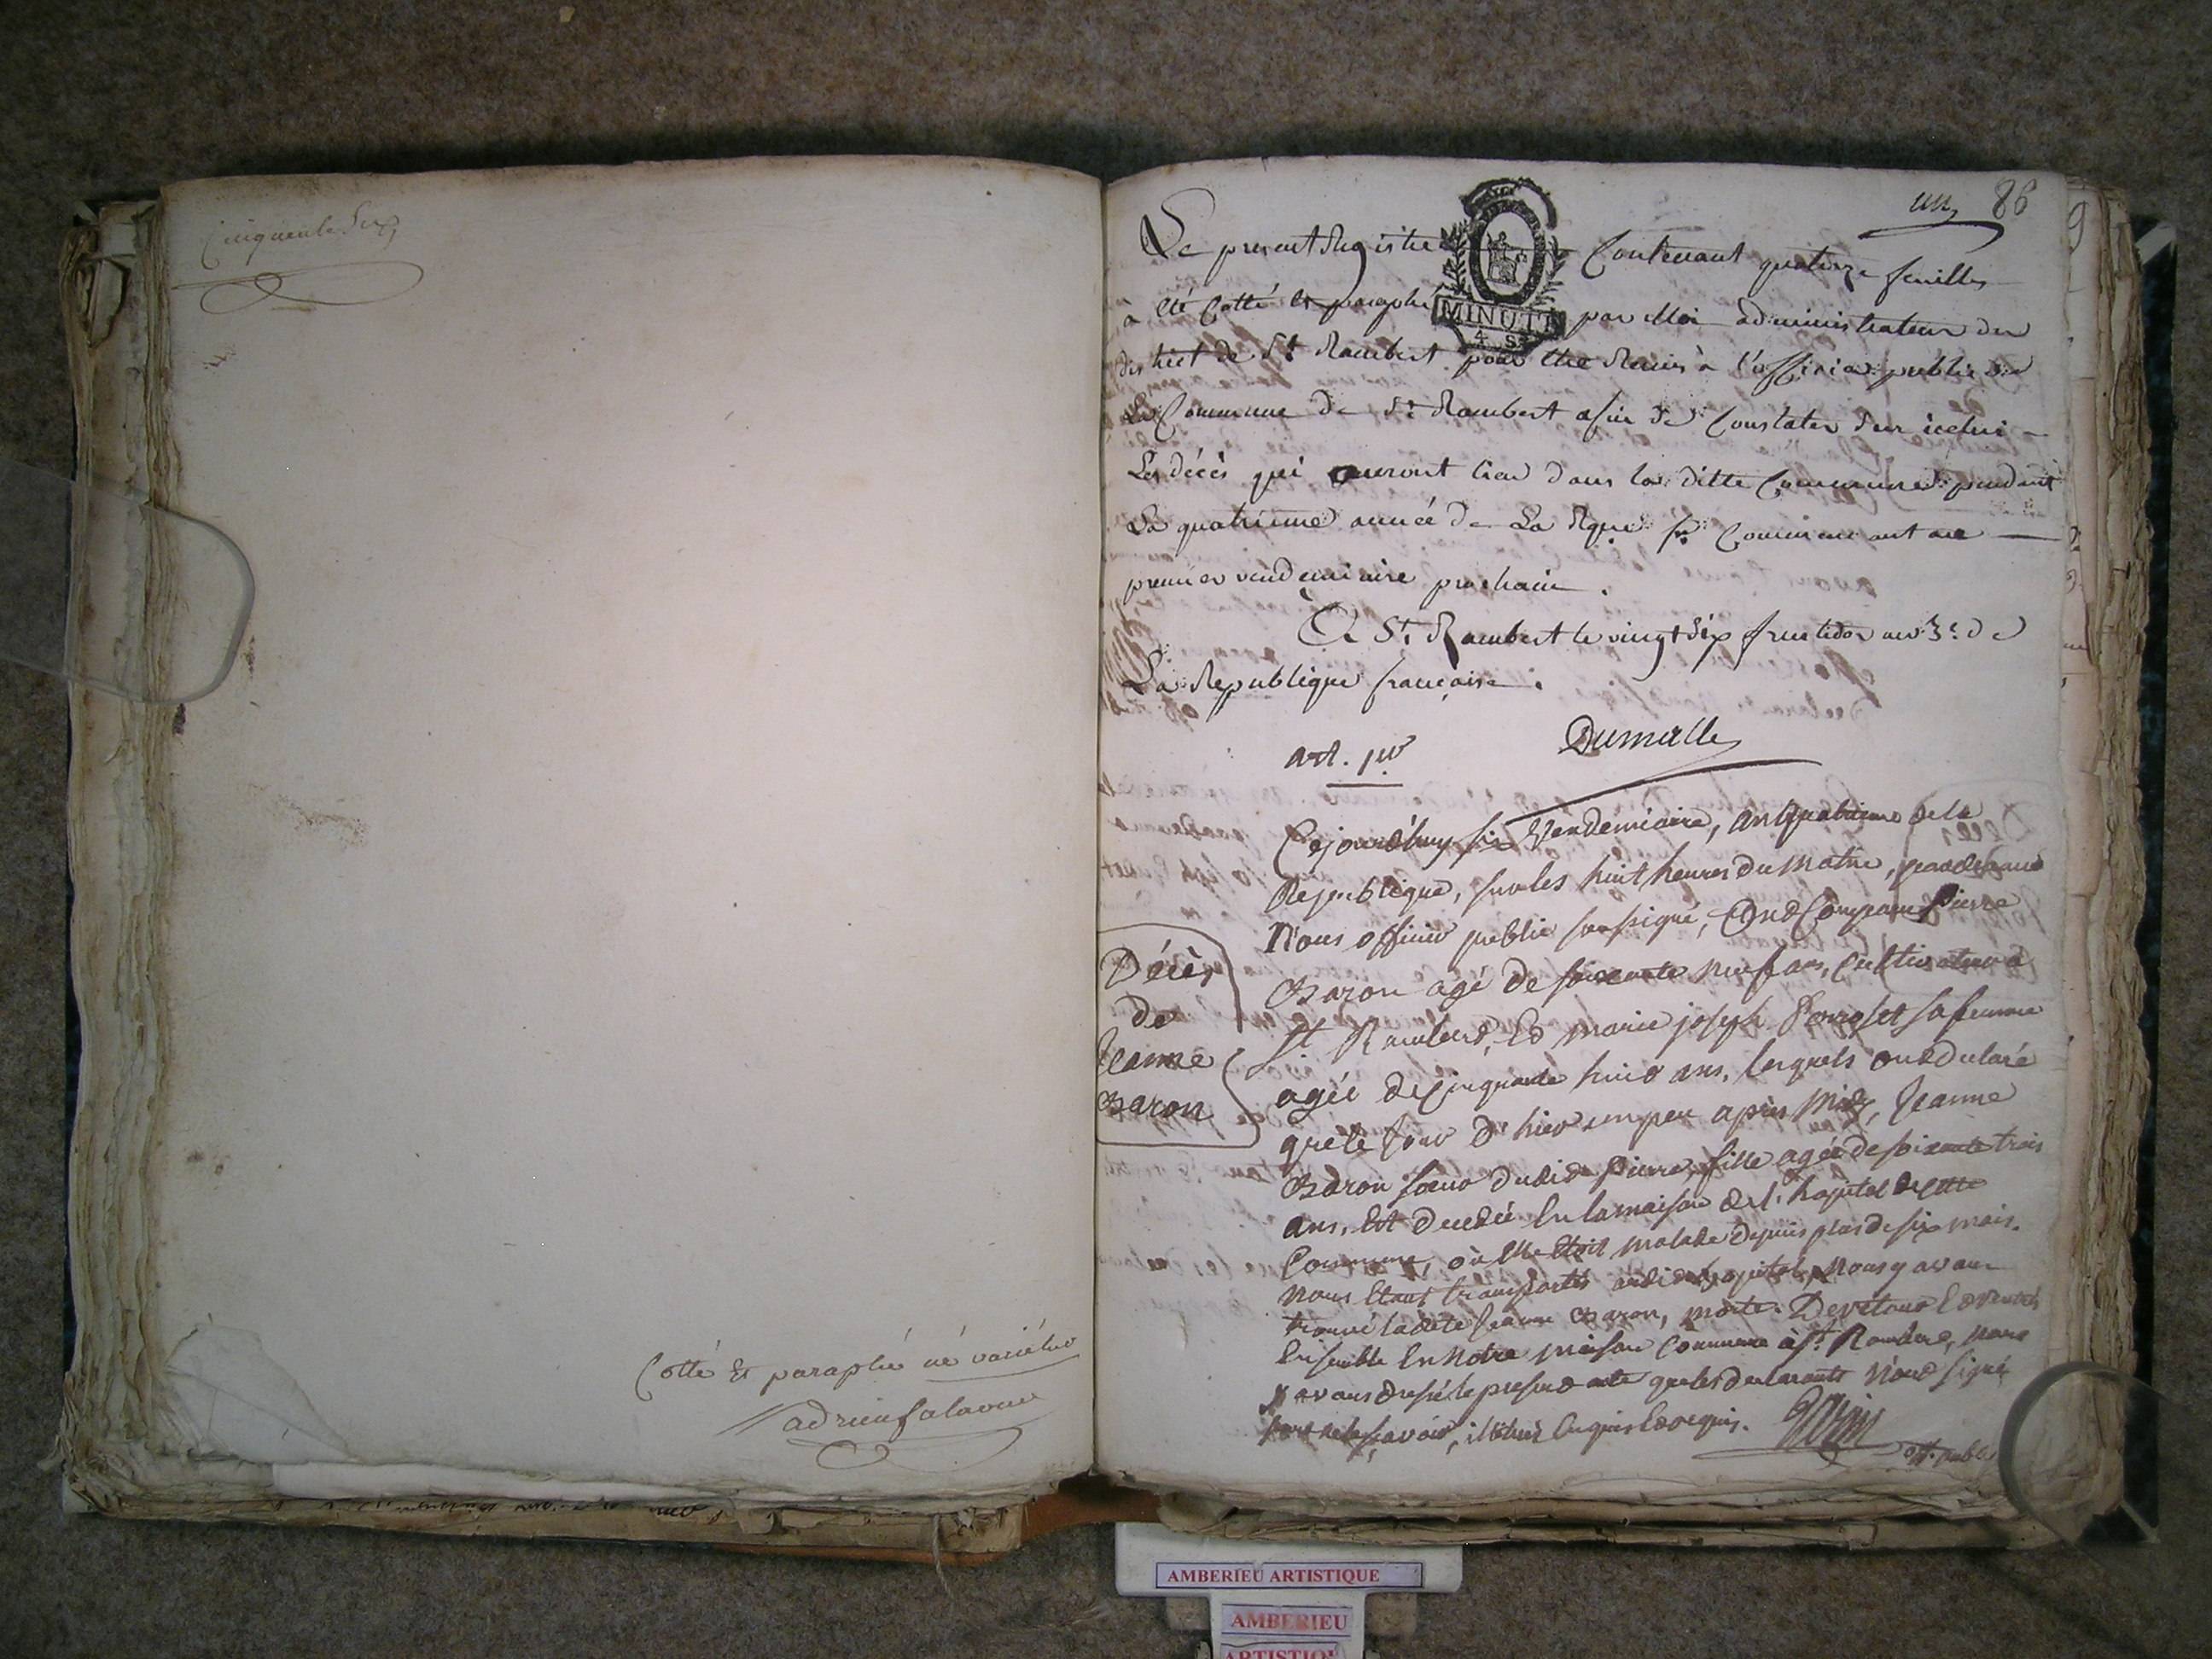 Cinquante Six
Cotté Et paraphé né variétur
adrien Salavuar
un 86
Le present Registre Contenant quatorze feuilles
a été Cotté et paraphé par Moi administrateur du
district de St Rambert pour être Remis à l'officier public de
La Commune de St Rambert afin de Constater sur icelui
Les décès qui auront lieu dans la ditte Commune pendant
La quatrieme année de La Rque. fse. Commencant au
premier vendemiaire prochain.
A St. Rambert le vingt Six fructidor an 3e. de
La Republique francaise.
MINUTE
4 S
Dumolle
art. 1er
Cejourdhuy six Vendemiaire, an quatrieme de la
Republique, sur les huit heures du matin, pardevant
Nous officier public soussigné, Ont Comparu Pierre
Baron agé de soixante neuf ans, Cultivateur à
St Rambert, Et marie joseph sa femme
agée de Cinquante huit ans, lesquels ont declaré
que le jour d'hier un peu après Midy, Jeanne
Baron soeur dudit Pierre, fille agée de soixante trois
ans, Est decedée En la maison de l'hopital de cette
Commune, où Elle Etoit malade depuis plus de six mois.
Nous Etant transportés audit hopital, Nous y avons
trouvé ladite Jeanne Baron, morte. De retour
Ensemble En Notre maison Commune à St. Rambert, nous
y avons dressé le present acte que les declarants N'ont signé
pour ne le sçavoir, illiterés Enquis Et requis.
off. public
Décès
de
Jeanne
Baron
AMBERIEU ARTISTIQUE
AMBERIEU
ARTISTIQUE